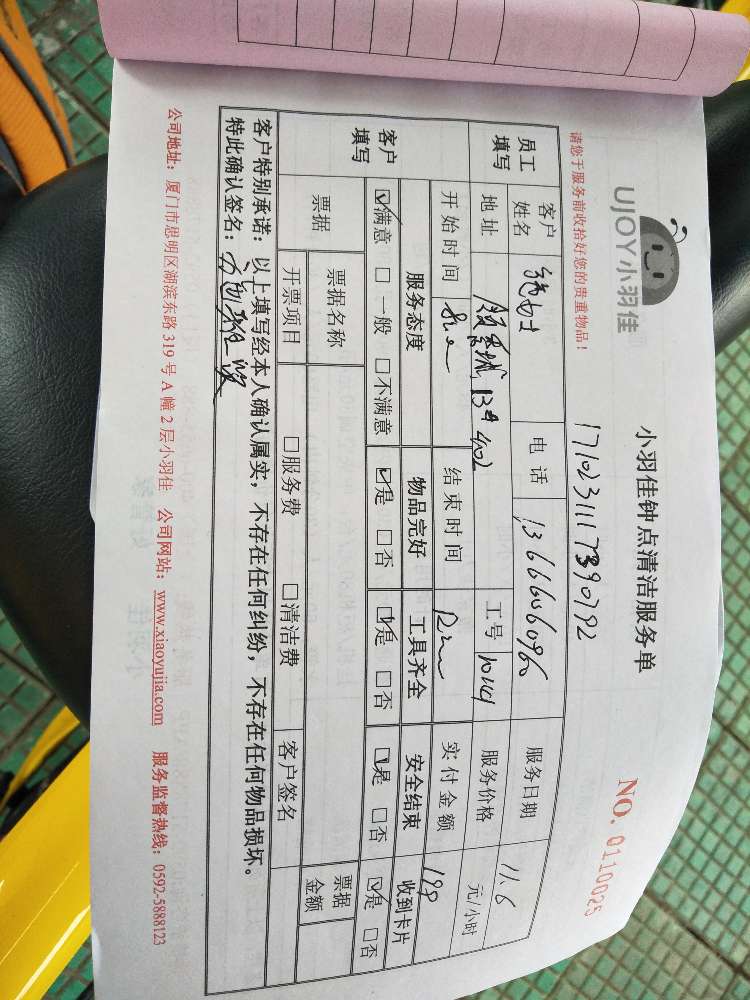 UJOY小羽佳
小羽佳钟点清洁服务单
NO. 0110025
请您于服务前收拾好您的贵重物品！
1710231117390792
员工填写
客户姓名
电话 13666606096
服务日期 11.6
地址 13#402
工号
服务价格 元/小时
开始时间
结束时间
实付金额 129
客户填写
服务态度 物品完好 工具齐全 安全结束 收到卡片
☑满意 □一般 □不满意 ☑是 □否 ☑是 □否 ☑是 □否 ☑是 □否
票据
票据名称
票据金额
开票项目 □服务费 □清洁费 客户签名
客户特别承诺：以上填写经本人确认属实，不存在任何纠纷，不存在任何物品损坏。
特此确认签名：
公司地址：厦门市思明区湖滨东路 319 号 A 幢 2 层小羽佳 公司网站：www.xiaoyujia.com 服务监督热线：0592-5888123